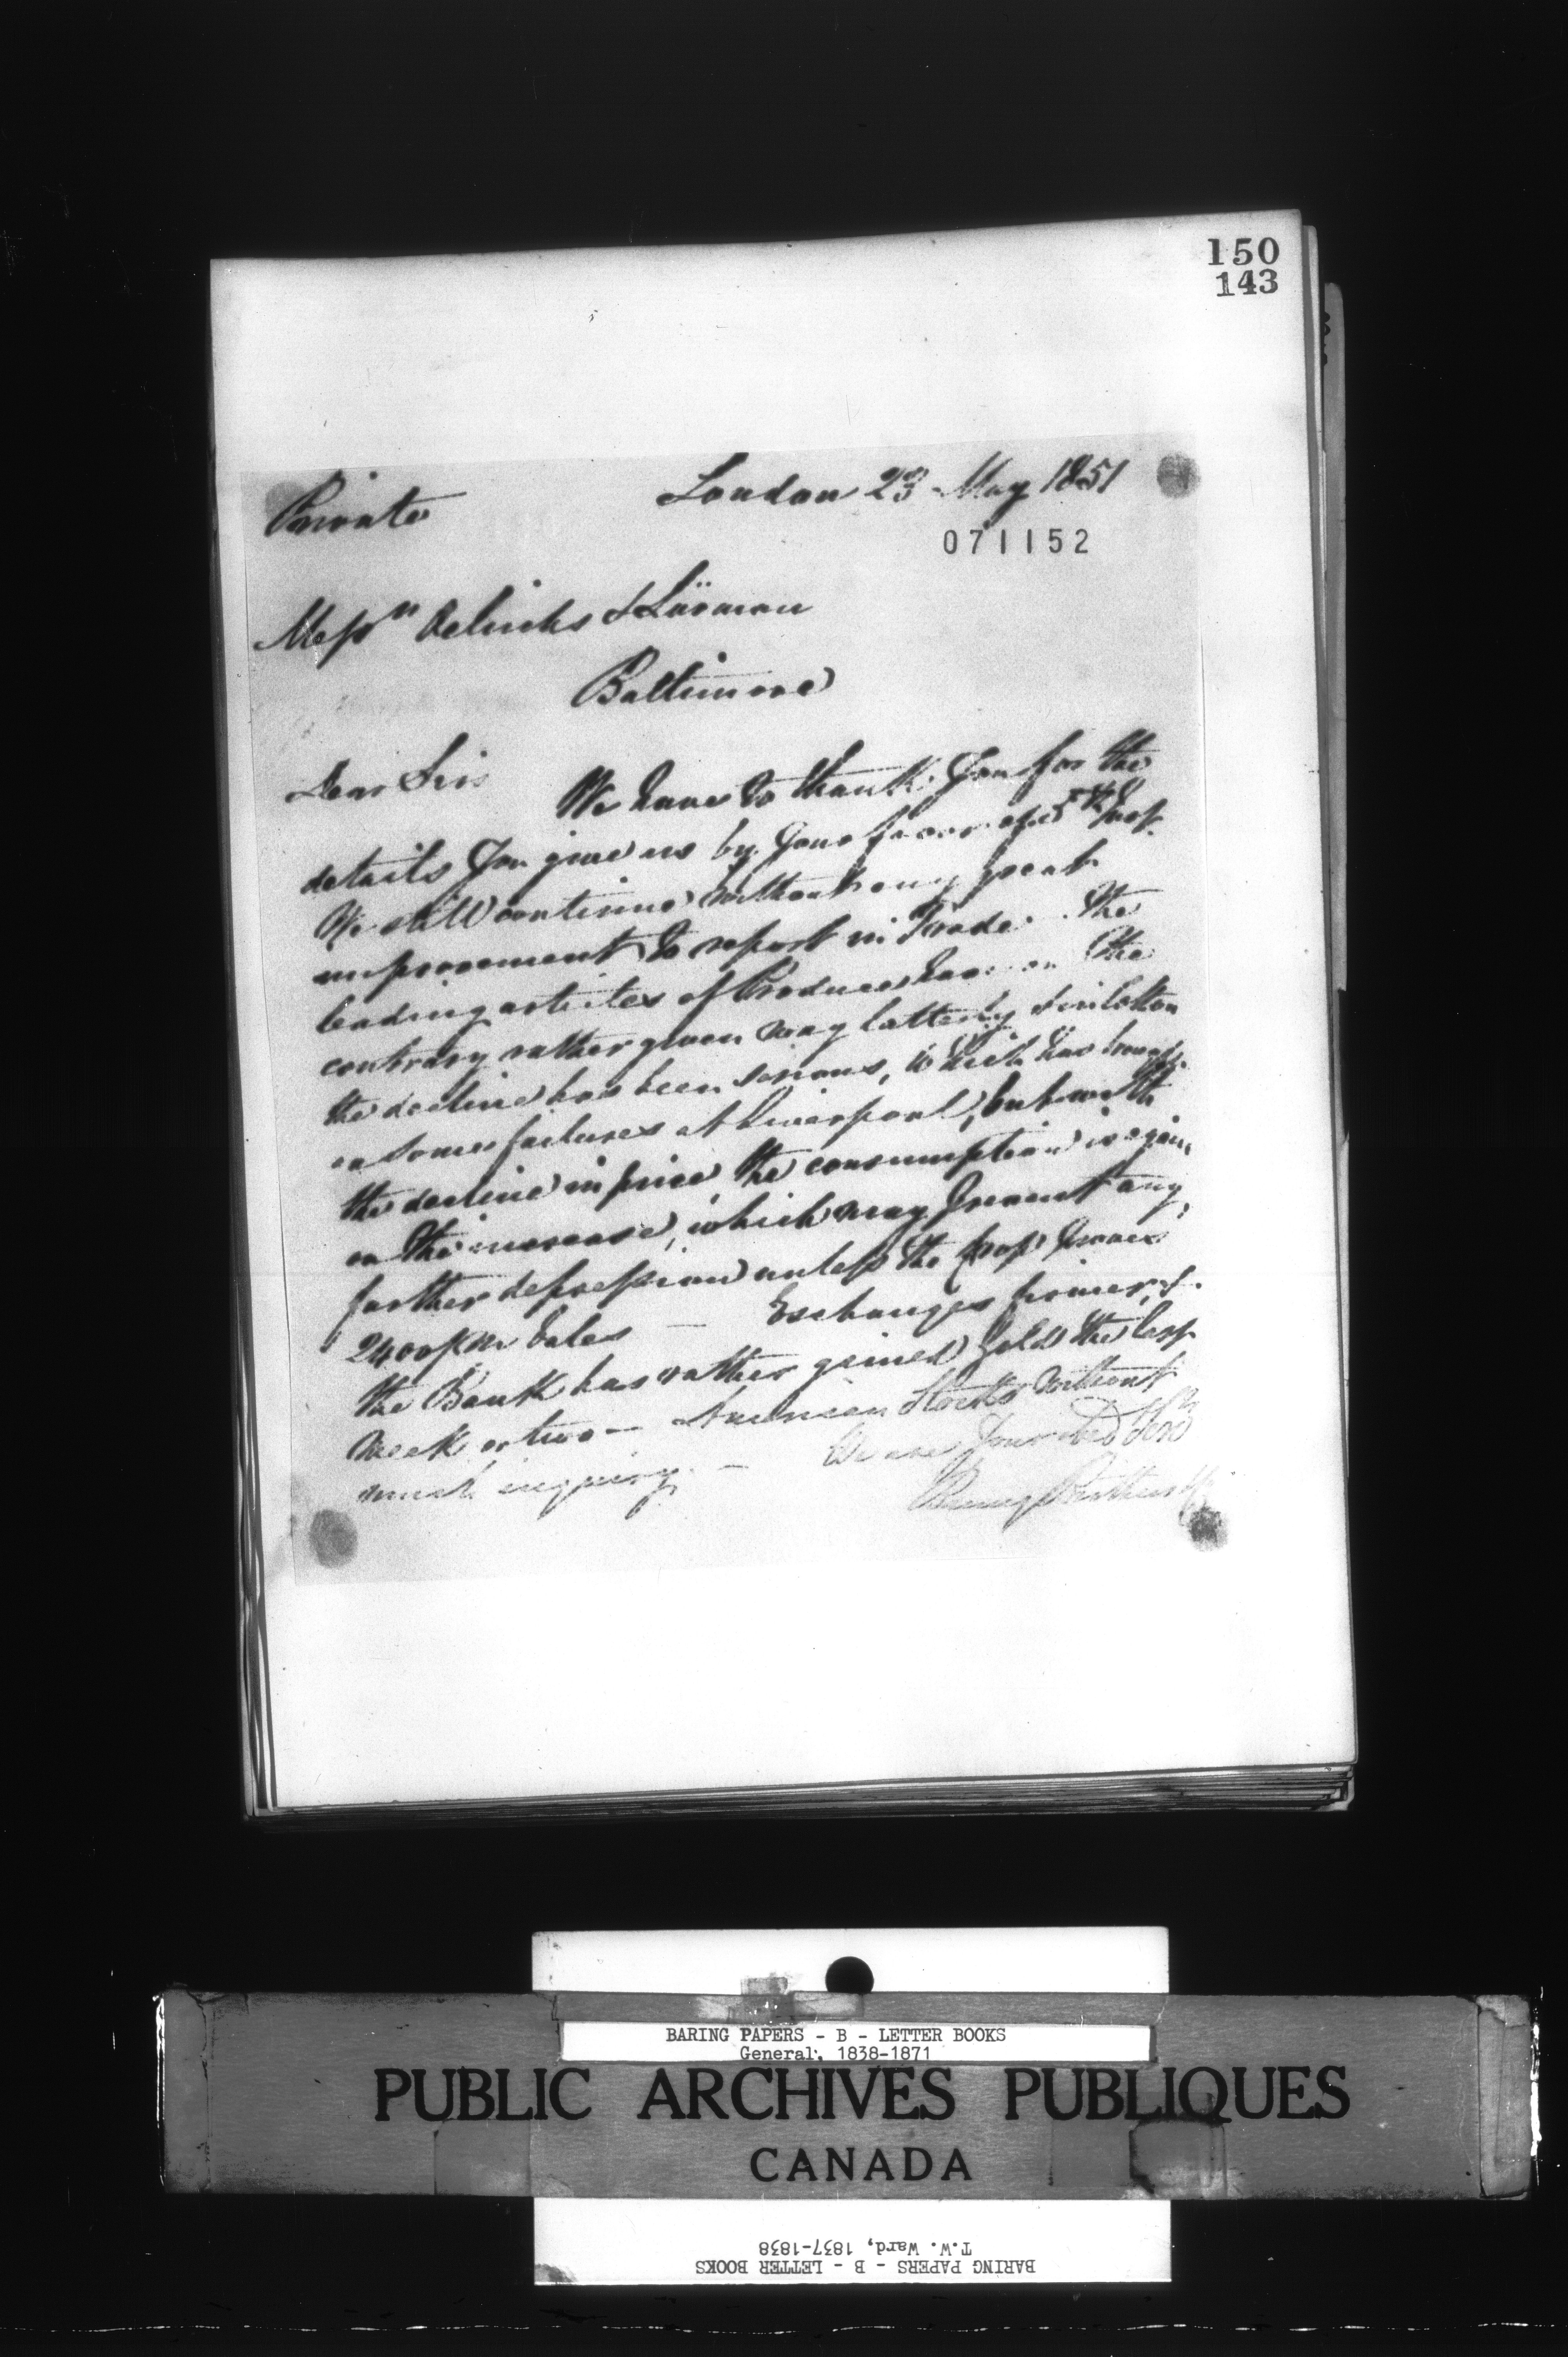 150
143
Private
London 23 May 1851
071152
Messrs Oelrichs & Lürman
Baltimore
Dear Sirs
We have to thank you for the
details you give us by your favor of 5th Inst.
We still continue without any great
improvement to report in Trade. The
leading articles of Produce have on the
contrary rather given way latterly & in Cotton
the decline has been serious, which has brought
on some failures at Liverpool, but with
the decline in price the consumption is again
on the increase, which may prevent any
further depression unless the Crop proves
2400/m bales — Exchanges firmer, &
the Bank has rather gained Gold the last
week or two — American Stocks without
much inquiry. — We are your
Baring Brothers & Co
BARING PAPERS - B - LETTER BOOKS
General, 1838-1871
PUBLIC ARCHIVES PUBLIQUES
CANADA
BARING PAPERS - B - LETTER BOOKS
T.W. Ward, 1837-1838